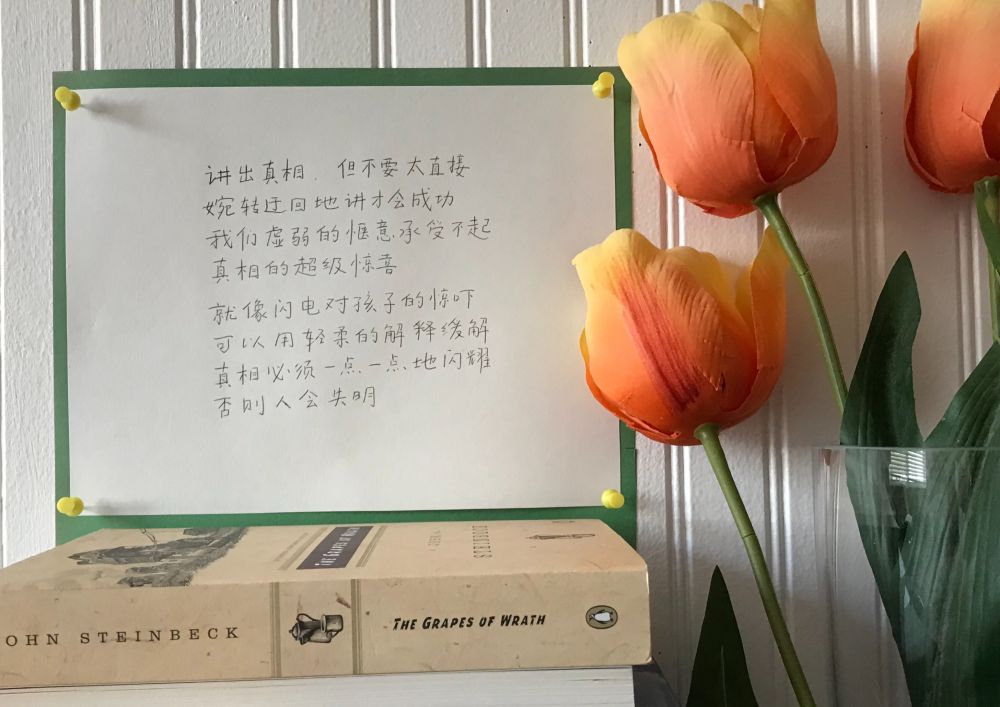 讲出真相. 但不要太直接
婉转迂回地讲才会成功
我们虚弱的惬意承受不起
真相的超级惊喜
就像闪电对孩子的惊吓
可以用轻柔的解释缓解
真相必须一点一点地闪耀
否则人会失明
THE GRAPES OF WRATH
STEINBECK
OHN STEINBECK
THE GRAPES OF WRATH